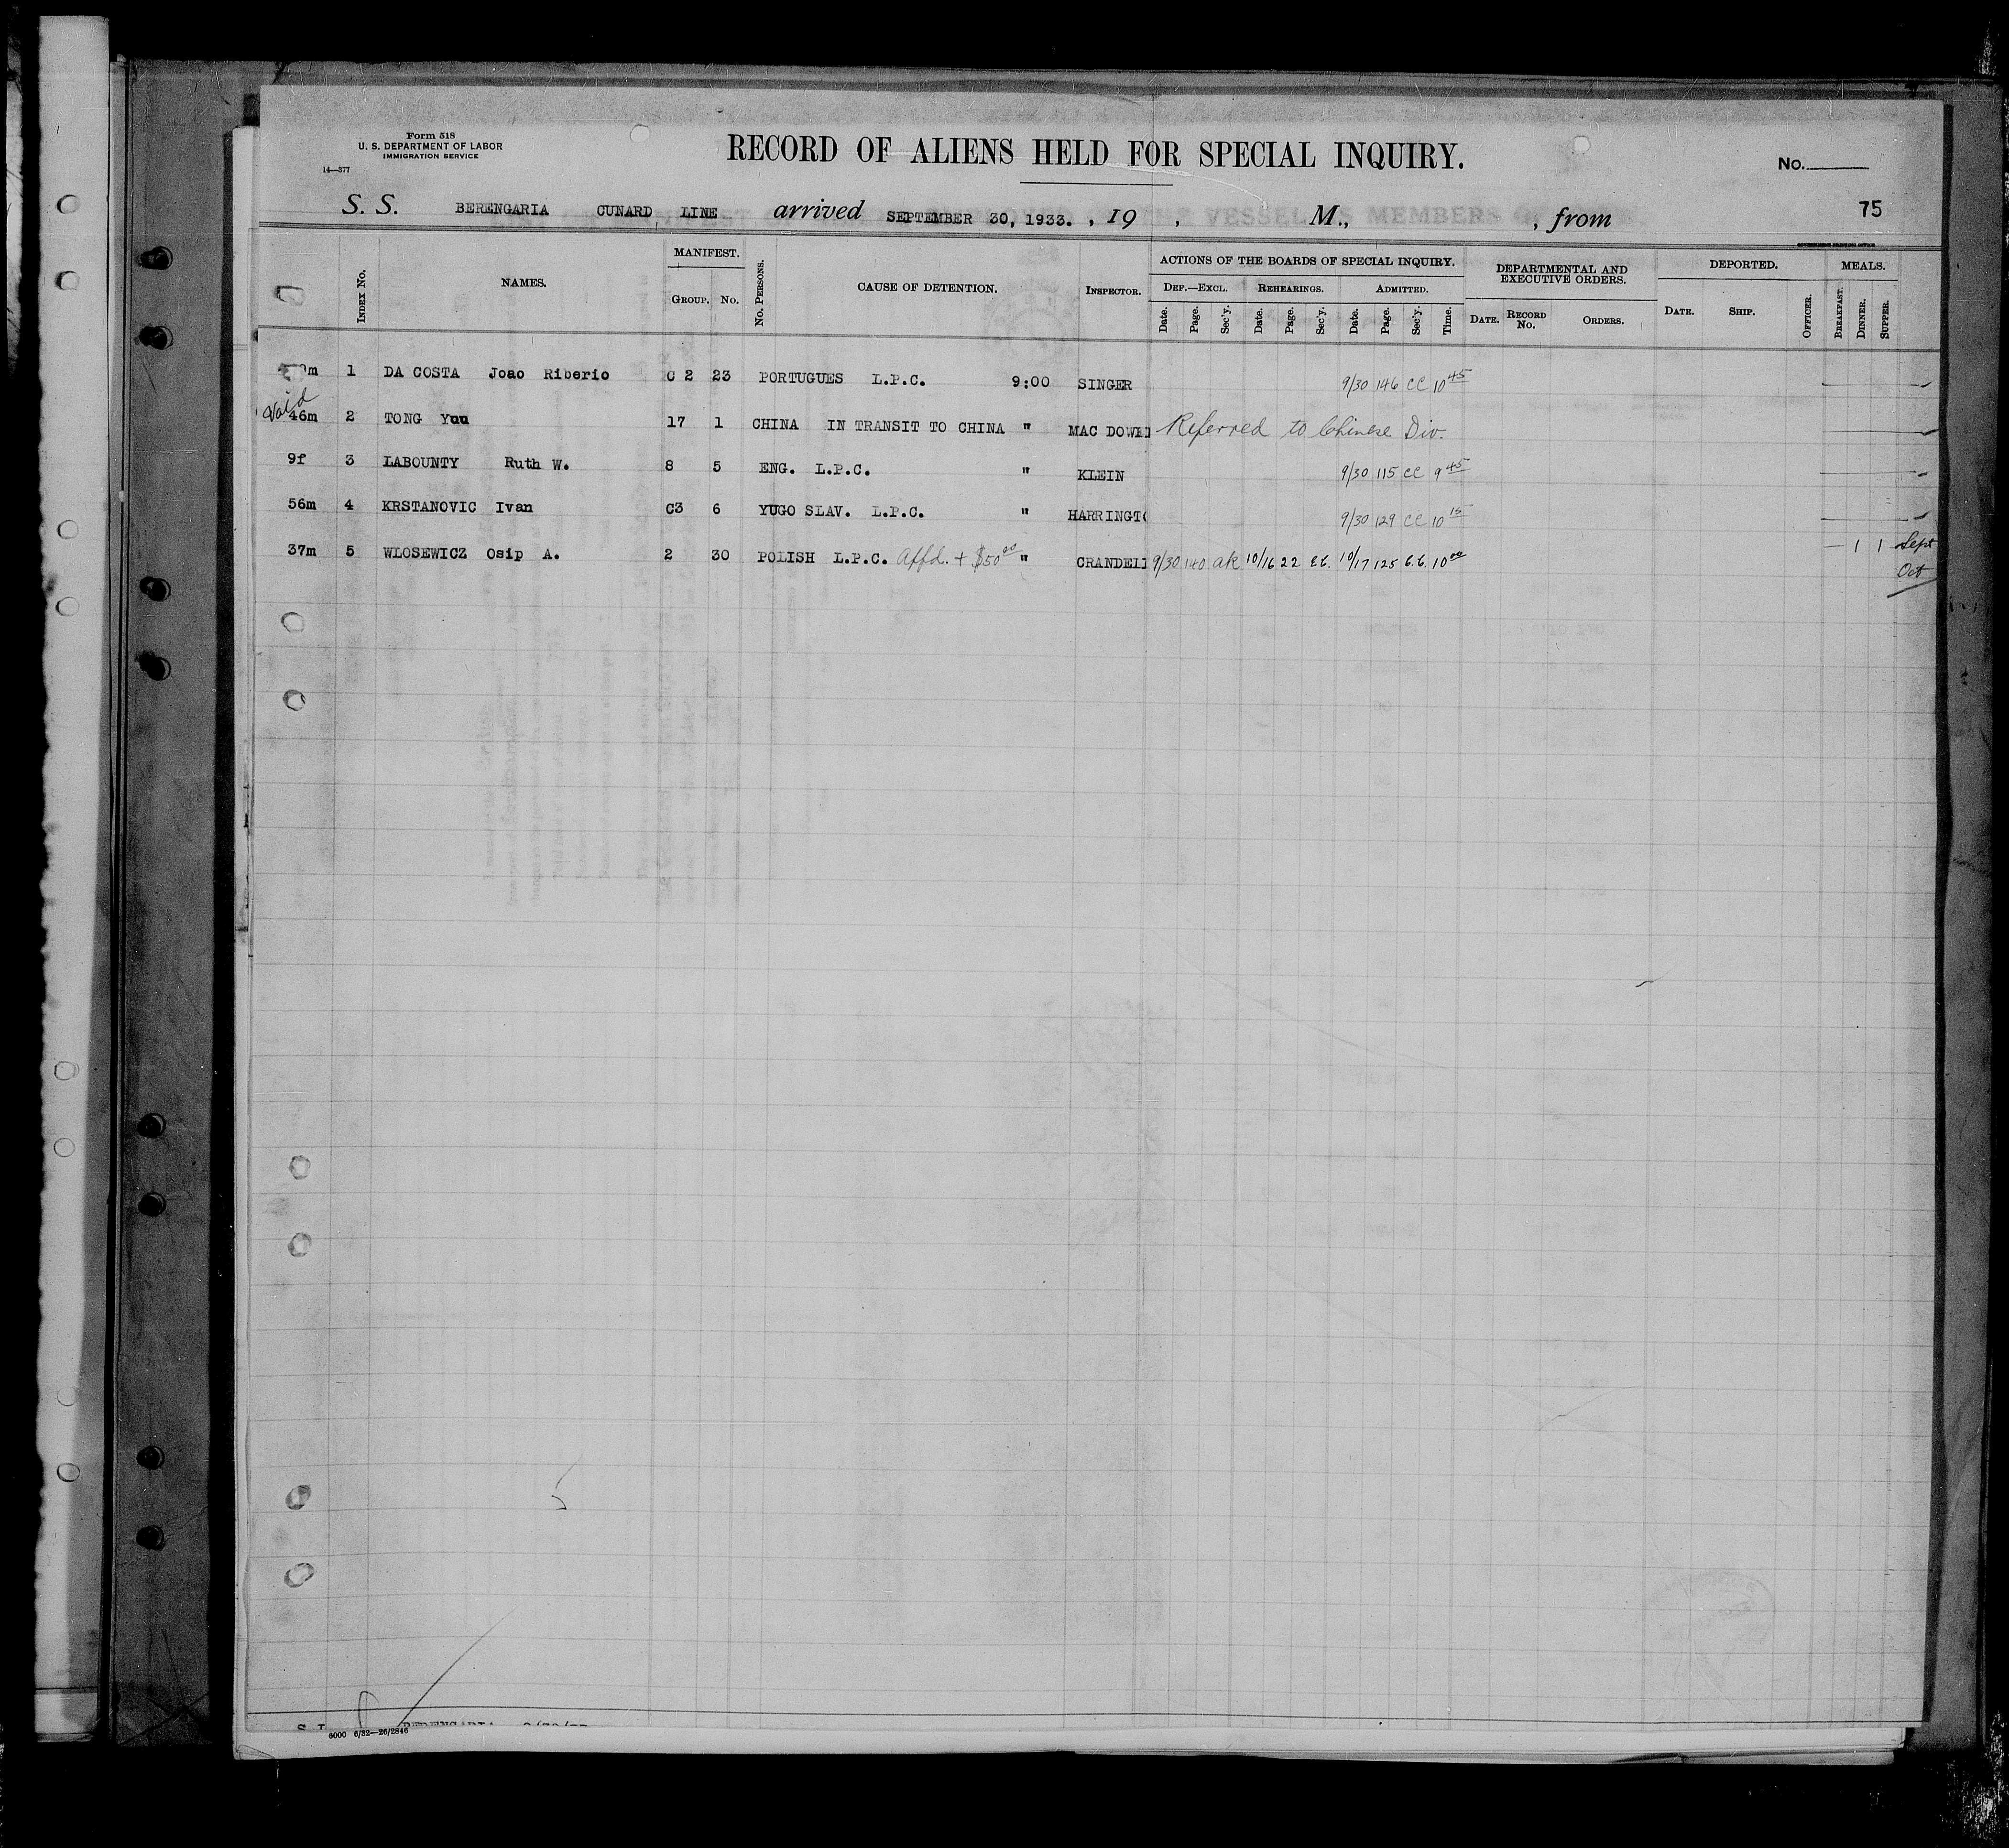 Form 518
U. S. DEPARTMENT OF LABOR
IMMIGRATION SERVICE
14—377
RECORD OF ALIENS HELD FOR SPECIAL INQUIRY.
No.
S. S. BERENGARIA CUNARD LINE arrived SEPTEMBER 30, 1933. , 19 , M., , from
75
INDEX No. NAMES. MANIFEST. GROUP. No. No. PERSONS. CAUSE OF DETENTION. INSPECTOR. ACTIONS OF THE BOARDS OF SPECIAL INQUIRY. DEF.—EXCL. REHEARINGS. ADMITTED. DEPARTMENTAL AND EXECUTIVE ORDERS. DEPORTED. MEALS.
Date. Page. Sec'y. Date. Page. Sec'y. Date. Page. Sec'y. Time. DATE. RECORD No. ORDERS. DATE. SHIP. OFFICER. BREAKFAST. DINNER. SUPPER.
1 DA COSTA Joao Riberio C 2 23 PORTUGUES L.P.C. 9:00 SINGER 9/30 146 CC 10 45
Void
46m 2 TONG Yuu 17 1 CHINA IN TRANSIT TO CHINA " MAC DOWE Referred to Chinese Div.
9f 3 LABOUNTY Ruth W. 8 5 ENG. L.P.C. " KLEIN 9/30 115 CC 9 45
56m 4 KRSTANOVIC Ivan C3 6 YUGO SLAV. L.P.C. " HARRINGT 9/30 129 CC 10 15
37m 5 WLOSEWICZ Osip A. 2 30 POLISH L.P.C. Affd. + $50 00 " CRANDEL 9/30 140 ak 10/16 22 10/17 125 10 00 — 1 1 Sept
Oct
6000 6/32—26/2846